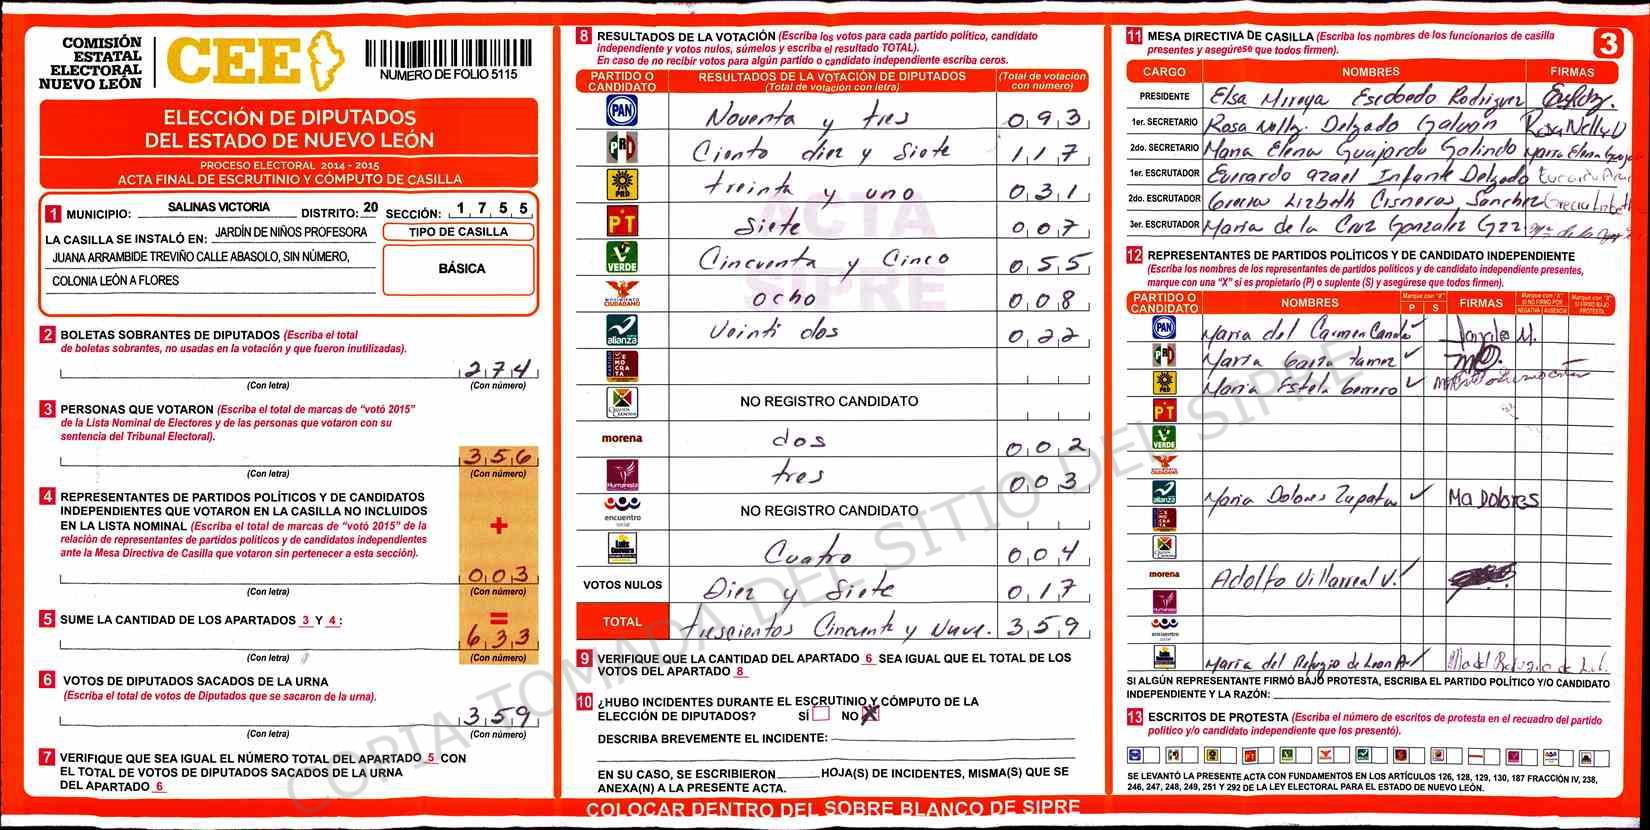 COMISIÓN
ESTATAL
ELECTORAL
NUEVO LEÓN
CEE
NUMERO DE FOLIO 5115
ELECCIÓN DE DIPUTADOS
DEL ESTADO DE NUEVO LEÓN
PROCESO ELECTORAL 2014 - 2015
ACTA FINAL DE ESCRUTINIO Y CÓMPUTO DE CASILLA
1 MUNICIPIO: SALINAS VICTORIA DISTRITO: 20 SECCIÓN: 1 7 5 5
LA CASILLA SE INSTALÓ EN: JARDÍN DE NIÑOS PROFESORA
JUANA ARRAMBIDE TREVIÑO CALLE ABASOLO, SIN NÚMERO,
COLONIA LEÓN A FLORES
TIPO DE CASILLA
BÁSICA
2 BOLETAS SOBRANTES DE DIPUTADOS (Escriba el total
de boletas sobrantes, no usadas en la votación y que fueron inutilizadas).
2 7 4
(Con letra) (Con número)
3 PERSONAS QUE VOTARON (Escriba el total de marcas de “votó 2015”
de la Lista Nominal de Electores y de las personas que votaron con su
sentencia del Tribunal Electoral).
3 5 6
(Con letra) (Con número)
4 REPRESENTANTES DE PARTIDOS POLÍTICOS Y DE CANDIDATOS
INDEPENDIENTES QUE VOTARON EN LA CASILLA NO INCLUIDOS
EN LA LISTA NOMINAL (Escriba el total de marcas de “votó 2015” de la
relación de representantes de partidos políticos y de candidatos independientes
ante la Mesa Directiva de Casilla que votaron sin pertenecer a esta sección).
+
0 0 3
(Con letra) (Con número)
5 SUME LA CANTIDAD DE LOS APARTADOS 3 Y 4:
=
6 3 3
(Con letra) (Con número)
6 VOTOS DE DIPUTADOS SACADOS DE LA URNA
(Escriba el total de votos de Diputados que se sacaron de la urna).
3 5 9
(Con letra) (Con número)
7 VERIFIQUE QUE SEA IGUAL EL NÚMERO TOTAL DEL APARTADO 5 CON
EL TOTAL DE VOTOS DE DIPUTADOS SACADOS DE LA URNA
DEL APARTADO 6
8 RESULTADOS DE LA VOTACIÓN (Escriba los votos para cada partido político, candidato
independiente y votos nulos, súmelos y escriba el resultado TOTAL).
En caso de no recibir votos para algún partido o candidato independiente escriba ceros.
PARTIDO O CANDIDATO RESULTADOS DE LA VOTACIÓN DE DIPUTADOS (Total de votación con letra) (Total de votación con número)
PAN Noventa y tres 0 9 3
PRI Ciento diez y Siete 1 1 7
PRD treinta y uno 0 3 1
PT Siete 0 0 7
VERDE Cincuenta y Cinco 0 5 5
MOVIMIENTO CIUDADANO ocho 0 0 8
alianza Veinti dos 0 2 2
DEMOCRATA
NO REGISTRO CANDIDATO
morena dos 0 0 2
Humanista tres 0 0 3
encuentro social NO REGISTRO CANDIDATO
Cuatro 0 0 4
VOTOS NULOS Diez y Siete 0 1 7
TOTAL trescientos Cincuenta y Nueve. 3 5 9
9 VERIFIQUE QUE LA CANTIDAD DEL APARTADO 6 SEA IGUAL QUE EL TOTAL DE LOS
VOTOS DEL APARTADO 8
10 ¿HUBO INCIDENTES DURANTE EL ESCRUTINIO Y CÓMPUTO DE LA
ELECCIÓN DE DIPUTADOS? SÍ NO X
DESCRIBA BREVEMENTE EL INCIDENTE:
EN SU CASO, SE ESCRIBIERON HOJA(S) DE INCIDENTES, MISMA(S) QUE SE
ANEXA(N) A LA PRESENTE ACTA.
COLOCAR DENTRO DEL SOBRE BLANCO DE SIPRE
ACTA
SIPRE
COPIA TOMADA DEL SITIO DEL SIPRE
11 MESA DIRECTIVA DE CASILLA (Escriba los nombres de los funcionarios de casilla
presentes y asegúrese que todos firmen).
3
CARGO NOMBRES FIRMAS
PRESIDENTE Elsa Mireya Escobedo Rodriguez
1er. SECRETARIO Rosa Nelly Delgado Galvan Rosa Nelly D
2do. SECRETARIO Maria Elena Guajardo Galindo Maria Elena
1er. ESCRUTADOR Everardo azael Infante Delgado
2do. ESCRUTADOR Grecia Lizbeth Cisneros Sanchez Grecia Lizbeth
3er. ESCRUTADOR Maria de la Cruz Gonzalez Gzz
12 REPRESENTANTES DE PARTIDOS POLÍTICOS Y DE CANDIDATO INDEPENDIENTE
(Escriba los nombres de los representantes de partidos políticos y de candidato independiente presentes,
marque con una “X” si es propietario (P) o suplente (S) y asegúrese que todos firmen).
PARTIDO O CANDIDATO NOMBRES Marque con “X” P S FIRMAS Marque con “X” SI NO FIRMÓ POR NEGATIVA AUSENCIA Marque con “X” SI FIRMÓ BAJO PROTESTA
PAN Maria del Carmen
PRI Marta Garza Tamez
PRD Maria Estela
PT
VERDE
alianza Maria Dolores Zapata Ma DOLORES
morena Adolfo Villarreal V.
encuentro
Maria del Refugio de Leon A
SI ALGÚN REPRESENTANTE FIRMÓ BAJO PROTESTA, ESCRIBA EL PARTIDO POLÍTICO Y/O CANDIDATO
INDEPENDIENTE Y LA RAZÓN:
13 ESCRITOS DE PROTESTA (Escriba el número de escritos de protesta en el recuadro del partido
político y/o candidato independiente que los presentó).
SE LEVANTÓ LA PRESENTE ACTA CON FUNDAMENTOS EN LOS ARTÍCULOS 126, 128, 129, 130, 187 FRACCIÓN IV, 238,
246, 247, 248, 249, 251 Y 292 DE LA LEY ELECTORAL PARA EL ESTADO DE NUEVO LEÓN.